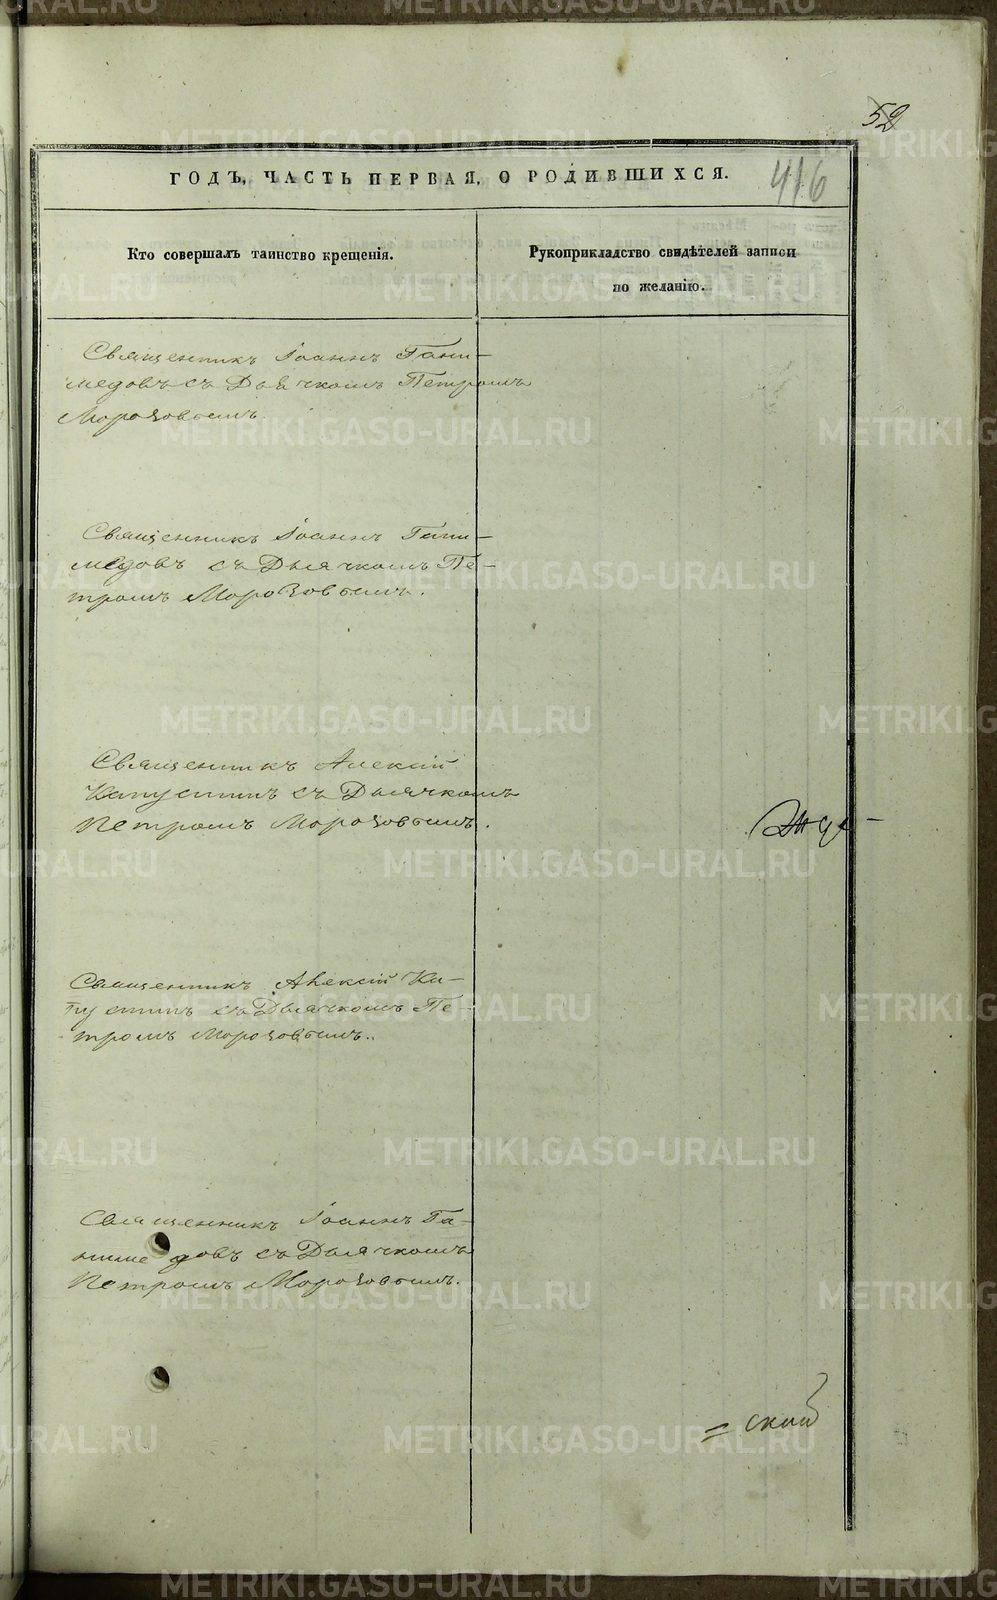 52
416
ГОДЪ, ЧАСТЬ ПЕРВАЯ, О РОДИВШИХСЯ.
Кто совершалъ таинство крещенія.
Рукоприкладство свидѣтелей записи
по желанію.
Священникъ Іоаннъ Гани-
медовъ съ Дьячкомъ Петромъ
Морозовымъ.
Священникъ Іоаннъ Гани-
медовъ съ Дьячкомъ Пе-
тромъ Морозовымъ.
Священникъ Алексій
Капустинъ съ Дьячкомъ
Петромъ Морозовымъ.
Священникъ Алексій Ка-
пустинъ съ Дьячкомъ Пе-
тромъ Морозовымъ.
Священникъ Іоаннъ Га-
ниме довъ съ Дьячкомъ
Петромъ Морозовымъ.
= скій
METRIKI.GASO-URAL.RU